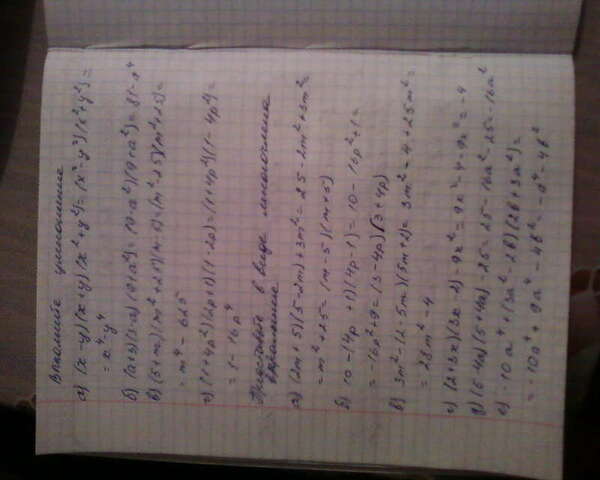 Выполните умножение
а) (x-y)(x+y)(x²+y²)=(x²-y²)(x²+y²)=
=x⁴-y⁴
б) (a+3)(3-a)(9+a²)=(9-a²)(9+a²)=81-a⁴
в) (5+m)(m²+25)(m-5)=(m²-25)(m²+25)=
=m⁴-625
г) (1+4p²)(2p+1)(1-2p)=(1+4p²)(1-4p²)=
=1-16p⁴
в виде многочлена
выражение
а) (2m+5)(5-2m)+3m²=25-2m²+3m²=
=m²+25=(m-5)(m+5)
б) 10-(4p+1)(4p-1)=10-16p²+1=
=-16p²+9=(3-4p)(3+4p)
в) 3m²-(2-5m)(5m+2)=3m²-4+25m²=
=28m²-4
г) (2+3x)(3x-2)-9x²=9x²-4-9x²=-4
д) (5-4a)(5+4a)-25=25-16a²-25=-16a²
е) -10a⁴+(3a²-2b)(2b+3a²)=
=-10a⁴+9a⁴-4b²=-a⁴-4b²